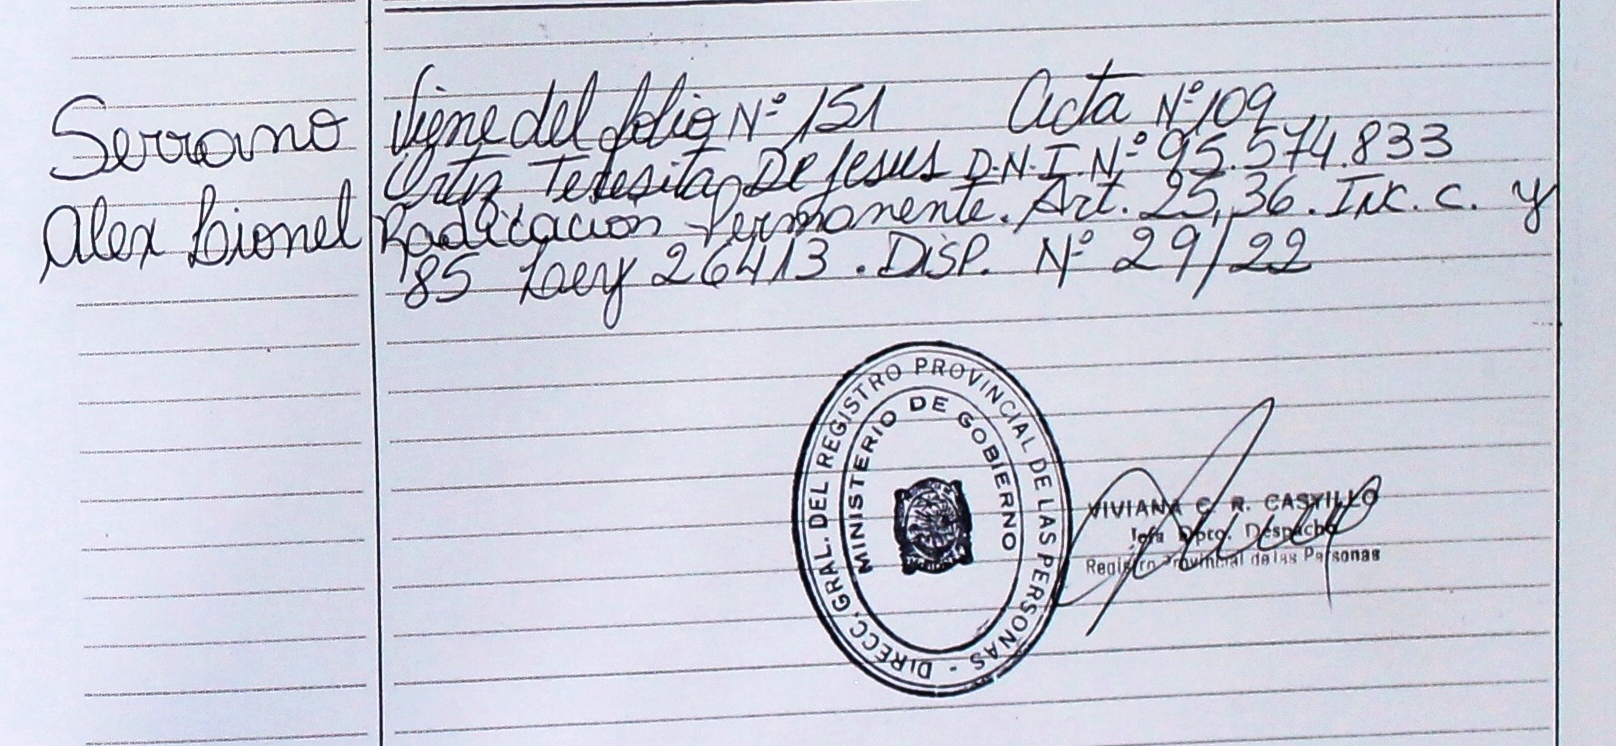 Serrano
Alex Lionel
Viene del folio Nº 151 Acta Nº 109
Ortiz Teresita De Jesus D.N.I. Nº 95.574.833
Radicacion Permanente. Art. 25, 36. Inc. c. y
85 Ley 26413. Disp. Nº 29/22
DIRECC. GRAL. DEL REGISTRO PROVINCIAL DE LAS PERSONAS -
MINISTERIO DE GOBIERNO
VIVIANA C. R. CASTILLO
Jefa Dpto. Despacho
Registro Provincial de las Personas